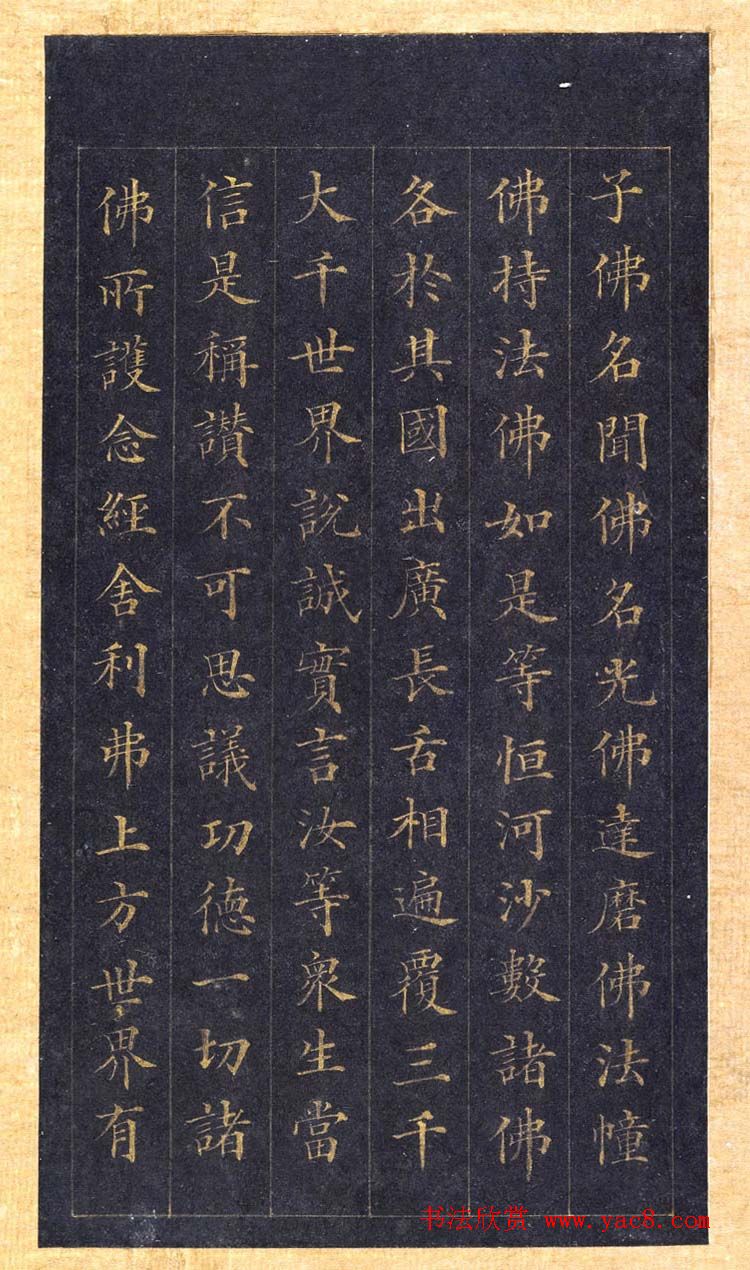 子佛名聞佛名光佛達磨佛法幢
佛持法佛如是等恒河沙數諸佛
各於其國出廣長舌相遍覆三千
大千世界說誠實言汝等眾生當
信是稱讚不可思議功德一切諸
佛所護念經舍利弗上方世界有
书法欣赏 www.yac8.com